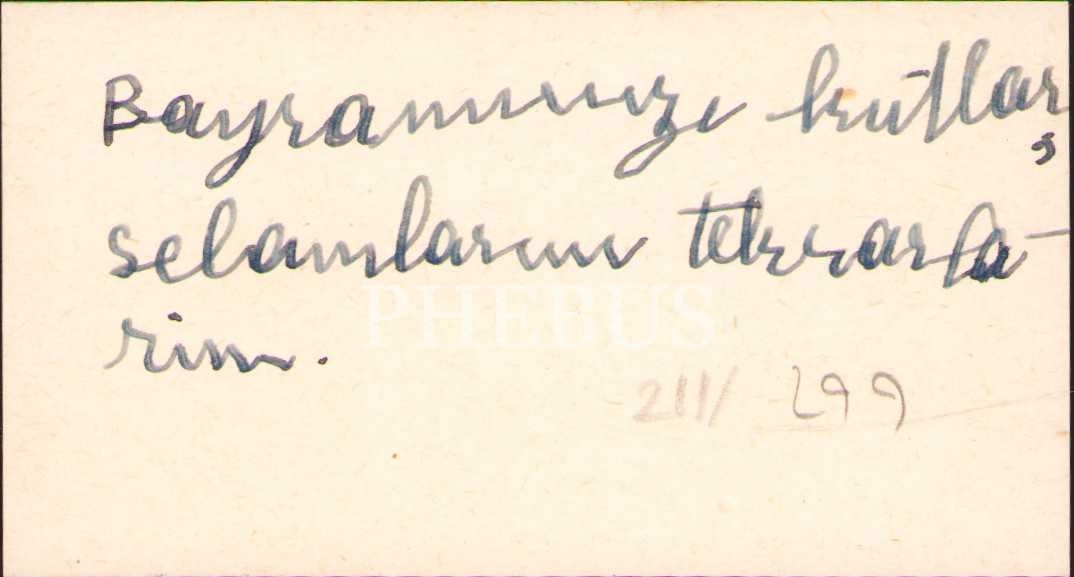 Bayramınızı kutlar,
selamlarımı tekrarla-
rım.
PHEBUS
211/ 299